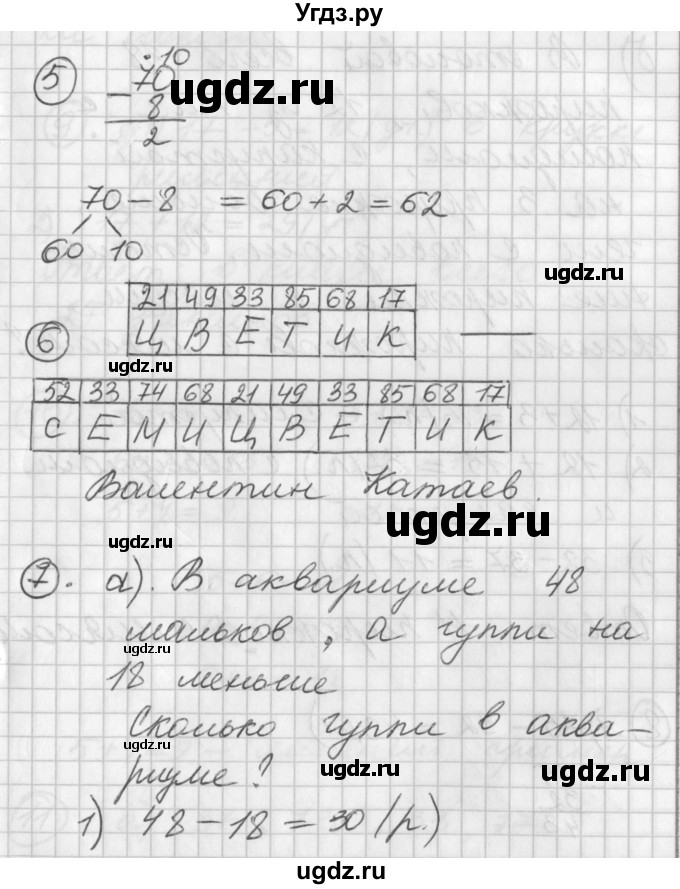 Угдз.ру
5
· 10
− 70
ugdz.ru
8
2
70 − 8 = 60 + 2 = 62
60 10
ugdz.ru
21 49 33 85 68 17
6
Ц В Е Т И К
ugdz.ru
52 33 74 68 21 49 33 85 68 17
С Е М И Ц В Е Т И К
Валентин Катаев.
ugdz.ru
ugdz.ru
7. а). В аквариуме 48
мальков, а гуппи на
ugdz.ru
18 меньше
Сколько гуппи в аква–
ugdz.ru
риуме?
ugdz.ru
ugdz.ru
1) 48 − 18 = 30 (р.)
ugdz.ru